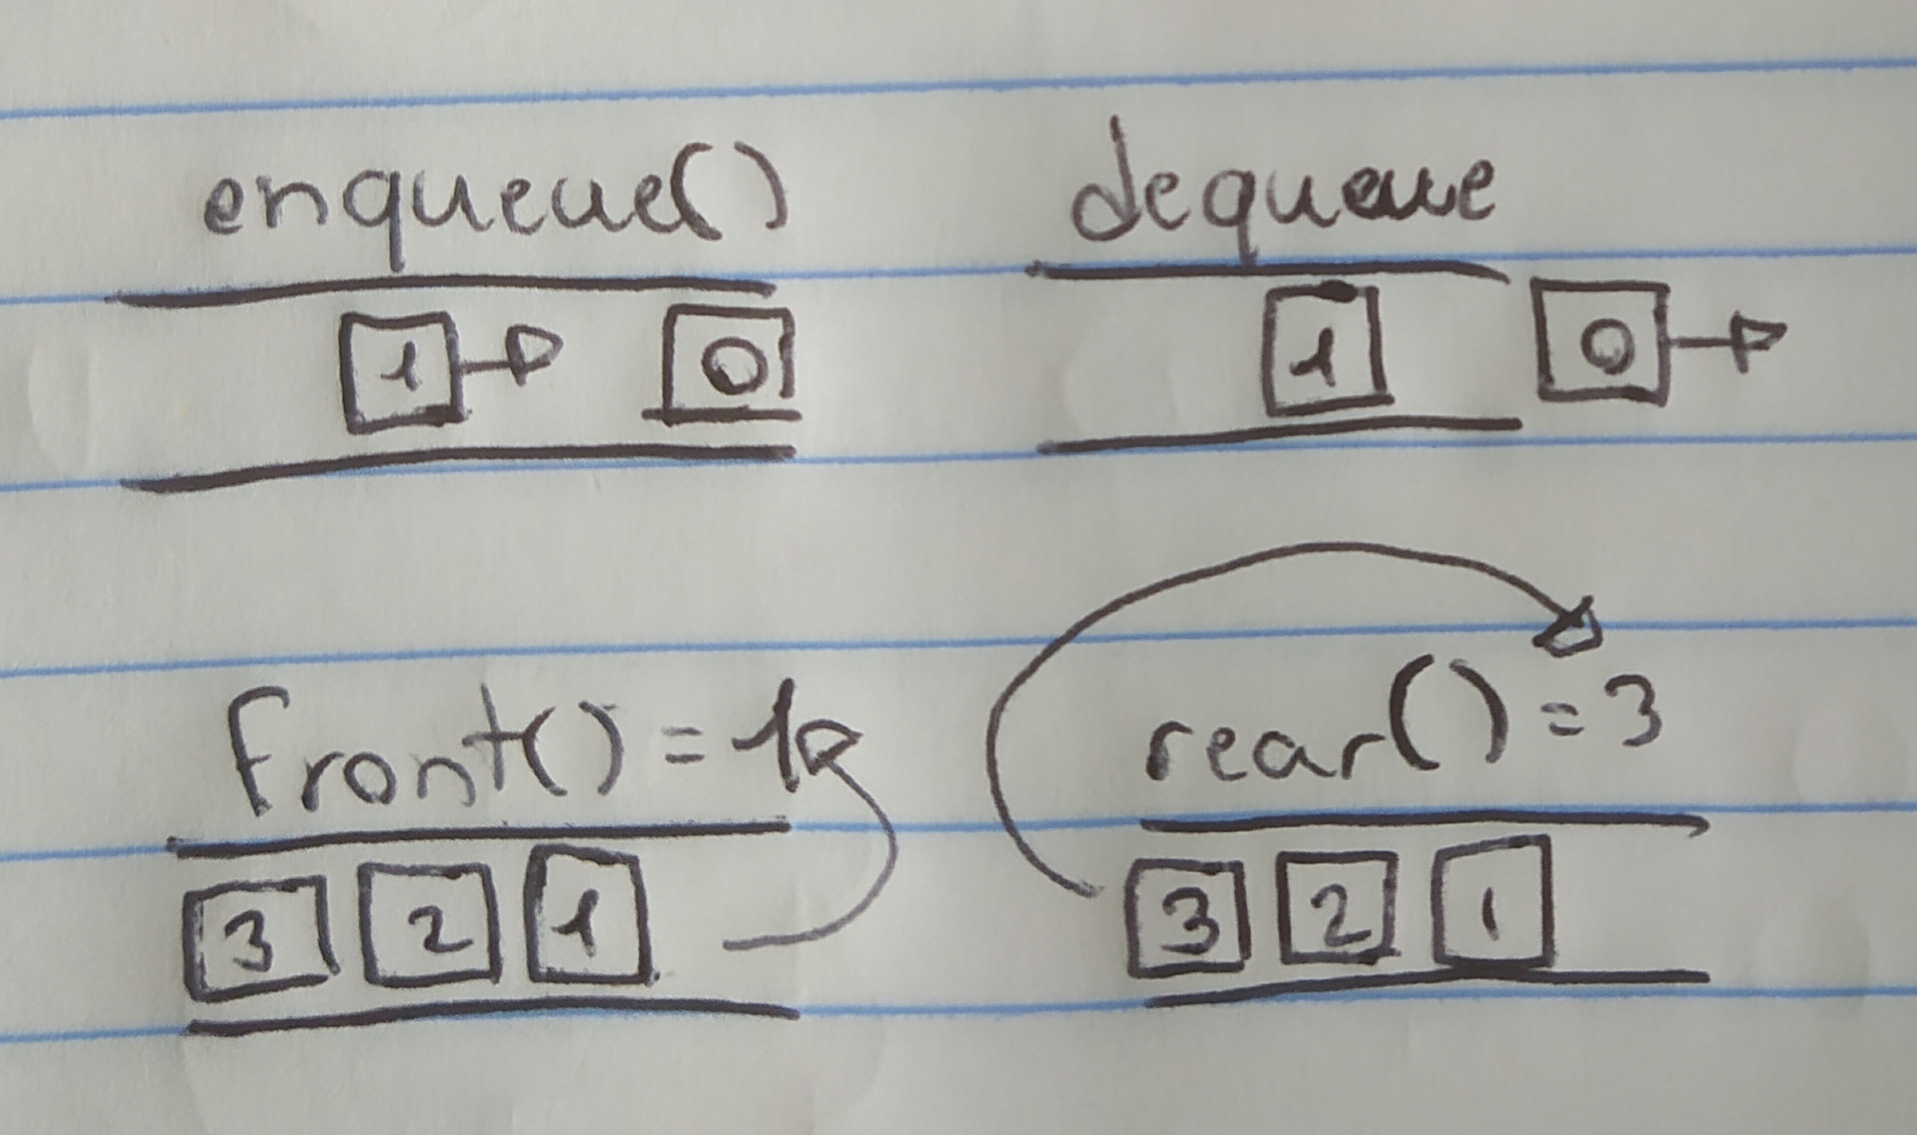 enqueue()
1 0
dequeue
1 0
front() = 1
3 2 1
rear() = 3
3 2 1